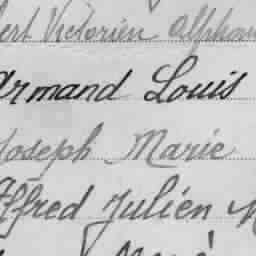 Victorien Alphon
Armand Louis
Joseph Marie
Alfred Julien